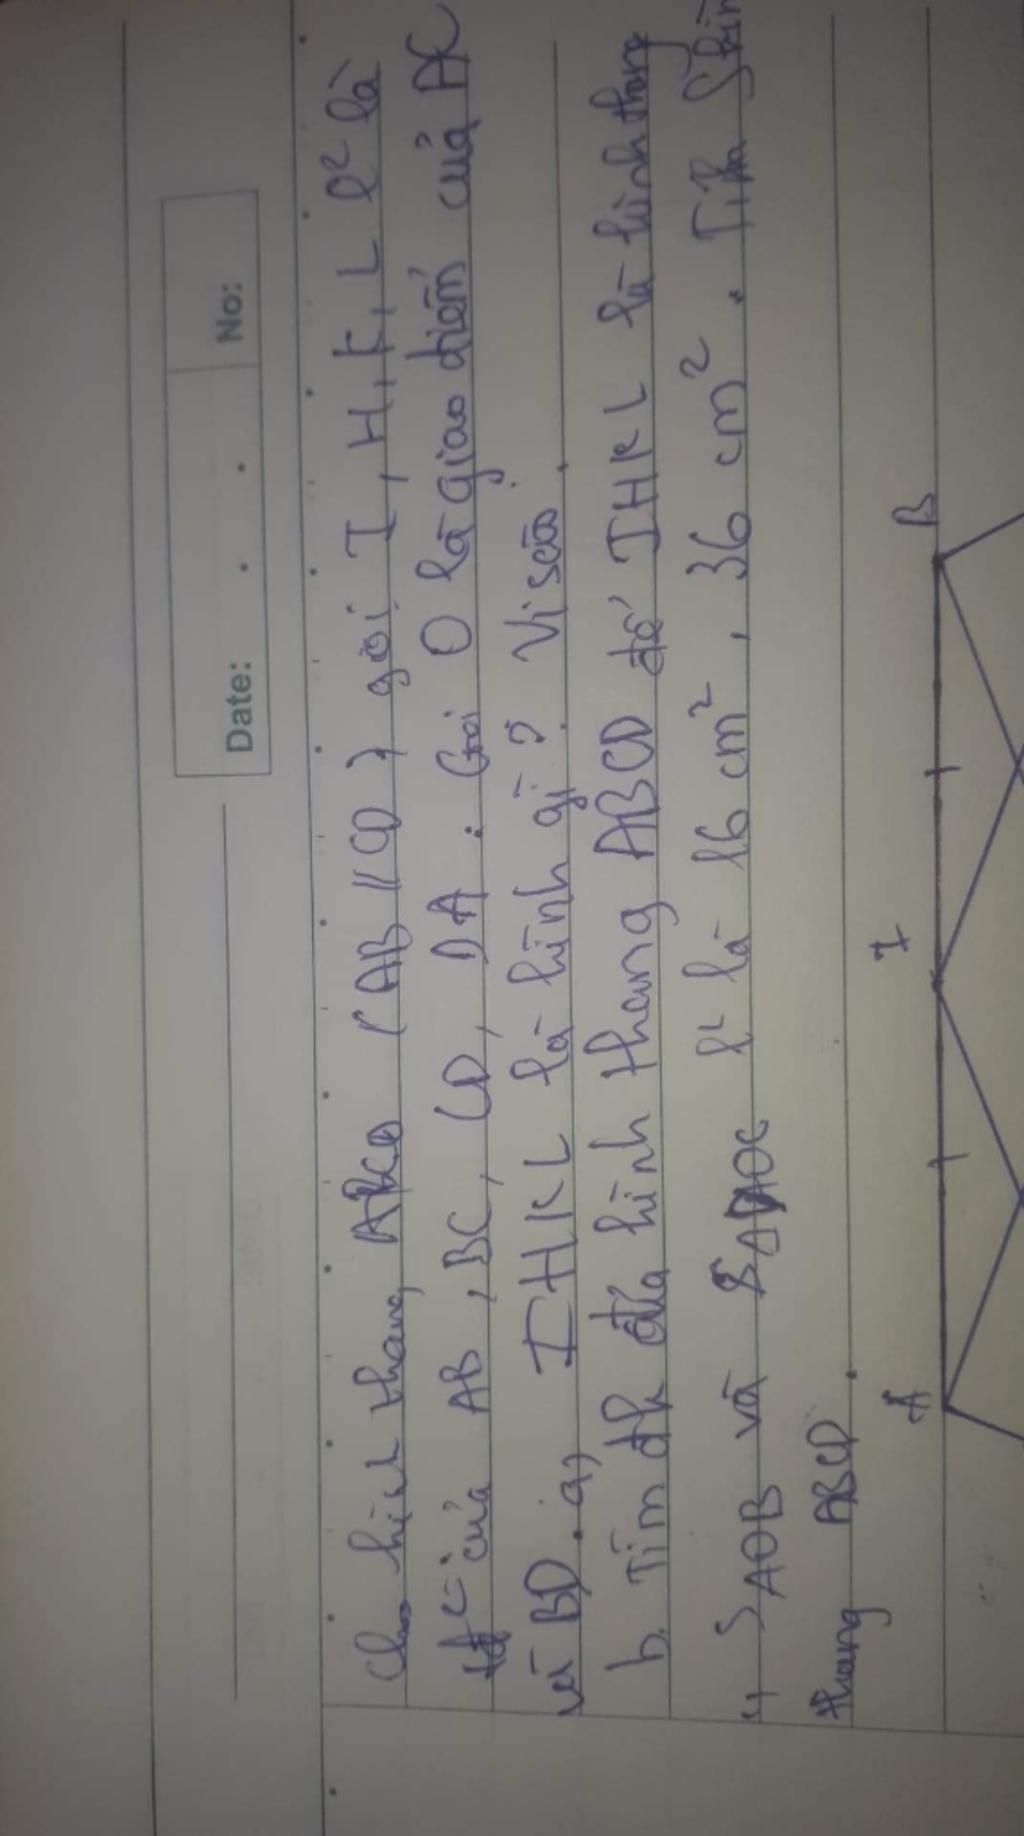 Date: No:
Cho hình thang ABCD (AB // CD), gọi I, H, K, L l² là
tđ của AB, BC, CD, DA. Gọi O là giao điểm của AC
và BD. a, IHKL là hình gì? Vì sao.
b. Tìm đk của hình thang ABCD để IHKL là hình thang
S AOB và l² là 16 cm², 36 cm². Tính Shình
thang ABCD.
A I B